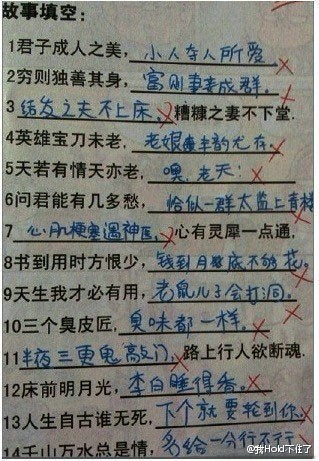 故事填空:
1君子成人之美,小人夺人所爱。
2穷则独善其身,富则妻妾成群。
3结发之夫不上床,糟糠之妻不下堂.
4英雄宝刀未老,老娘风韵尤存。
5天若有情天亦老,噢,老天!
6问君能有几多愁,恰似一群太监上青楼
7心肌梗塞遇神医,心有灵犀一点通,
8书到用时方恨少,钱到月底不够花。
9天生我才必有用,老鼠儿子会打洞。
10三个臭皮匠,臭味都一样。
11半夜三更鬼敲门,路上行人欲断魂.
12床前明月光,李白睡得香。
13人生自古谁无死,下个就要轮到你。
14千山万水总是情,多给一分行不行
@我Hold不住了